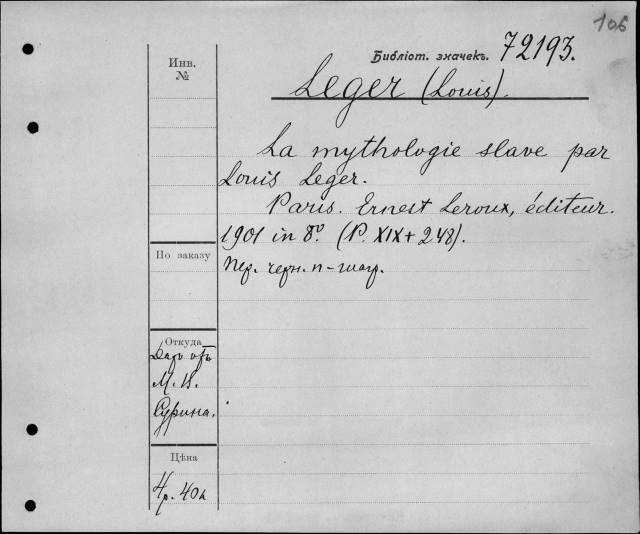 106
Библіот. значекъ. 72193.
Инв.
№
Leger (Louis).
La mythologie slave par
Louis Leger.
Paris. Ernest Leroux, éditeur.
1901 in 8º. (P. XIX + 248).
По заказу
Пер. черн. п-шагр.
Откуда
Даръ отъ
М. В.
Сурина.
Цѣна
4 р. 40 к